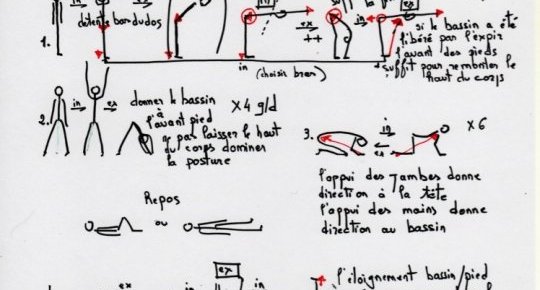 détente bas du dos
in
ex
++
in
(choisir bras)
si le bassin a été
libéré par l'expir
l'avant des pieds
suffit pour remonter le
haut du corps
1.
2.
in
ex
donner le bassin
à
l'avant pied
laisser le haut
corps dominer
la posture
X4 g/d
3.
in
ex
X6
l'appui des jambes donne
direction à la tête
l'appui des mains donne
direction au bassin
Repos
ou
ex
in
ex
in
l'éloignement bassin/pied